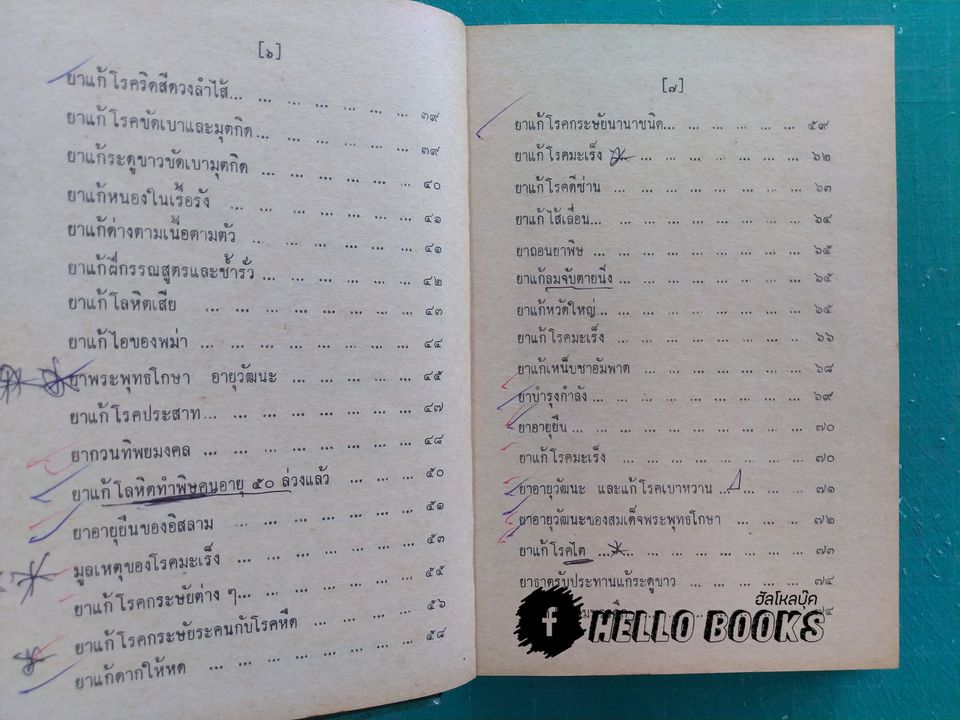 [๖]
ยาแก้โรคริดสีดวงลำไส้... ... ... ... ... ... ... ๓๙
ยาแก้โรคขัดเบาและมุตกิด... ... ... ... ... ... ๓๙
ยาแก้ระดูขาวขัดเบามุตกิด ... ... ... ... ... ... ๔๐
ยาแก้หนองในเรื้อรัง ... ... ... ... ... ... ... ๔๑
ยาแก้ด่างตามเนื้อตามตัว ... ... ... ... ... ... ๔๑
ยาแก้ฝีกรรณสูตรและช้ำรั่ว ... ... ... ... ... ... ๔๒
ยาแก้โลหิตเสีย ... ... ... ... ... ... ... ... ๔๓
ยาแก้ไอของพม่า ... ... ... ... ... ... ... ... ๔๔
ยาพระพุทธโกษา อายุวัฒนะ ... ... ... ... ... ๔๕
ยาแก้โรคประสาท... ... ... ... ... ... ... ... ๔๗
ยากวนทิพยมงคล ... ... ... ... ... ... ... ... ๔๘
ยาแก้โลหิตทำพิษคนอายุ ๕๐ ล่วงแล้ว ... ... ... ๕๐
ยาอายุยืนของอิสลาม ... ... ... ... ... ... ... ๕๑
มูลเหตุของโรคมะเร็ง ... ... ... ... ... ... ... ๕๓
ยาแก้โรคกระษัยต่าง ๆ... ... ... ... ... ... ... ๕๕
ยาแก้โรคกระษัยระคนกับโรคหืด ... ... ... ... ๕๖
ยาแก้ดากให้หด ... ... ... ... ... ... ... ... ๕๘
[๗]
ยาแก้โรคกระษัยนานาชนิด... ... ... ... ... ... ๕๙
ยาแก้โรคมะเร็ง ... ... ... ... ... ... ... ๖๒
ยาแก้โรคดีซ่าน ... ... ... ... ... ... ... ๖๓
ยาแก้ไส้เลื่อน... ... ... ... ... ... ... ... ๖๔
ยาถอนยาพิษ ... ... ... ... ... ... ... ... ๖๕
ยาแก้ลมจับตายนิ่ง ... ... ... ... ... ... ... ๖๕
ยาแก้หวัดใหญ่... ... ... ... ... ... ... ... ๖๕
ยาแก้โรคมะเร็ง ... ... ... ... ... ... ... ๖๖
ยาแก้เหน็บชาอัมพาต ... ... ... ... ... ... ... ๖๘
ยาบำรุงกำลัง ... ... ... ... ... ... ... ... ๖๙
ยาอายุยืน ... ... ... ... ... ... ... ... ๗๐
ยาแก้โรคมะเร็ง ... ... ... ... ... ... ... ๗๐
ยาอายุวัฒนะ และแก้โรคเบาหวาน ... ... ... ... ๗๑
ยาอายุวัฒนะของสมเด็จพระพุทธโกษา ... ... ... ... ๗๒
ยาแก้โรคไต ... ... ... ... ... ... ... ... ๗๓
ยาธาตุรับประทานแก้ระดูขาว ... ... ... ... ... ๗๔
๗๔
ฮัลโหลบุ๊ค
f HELLO BOOKS